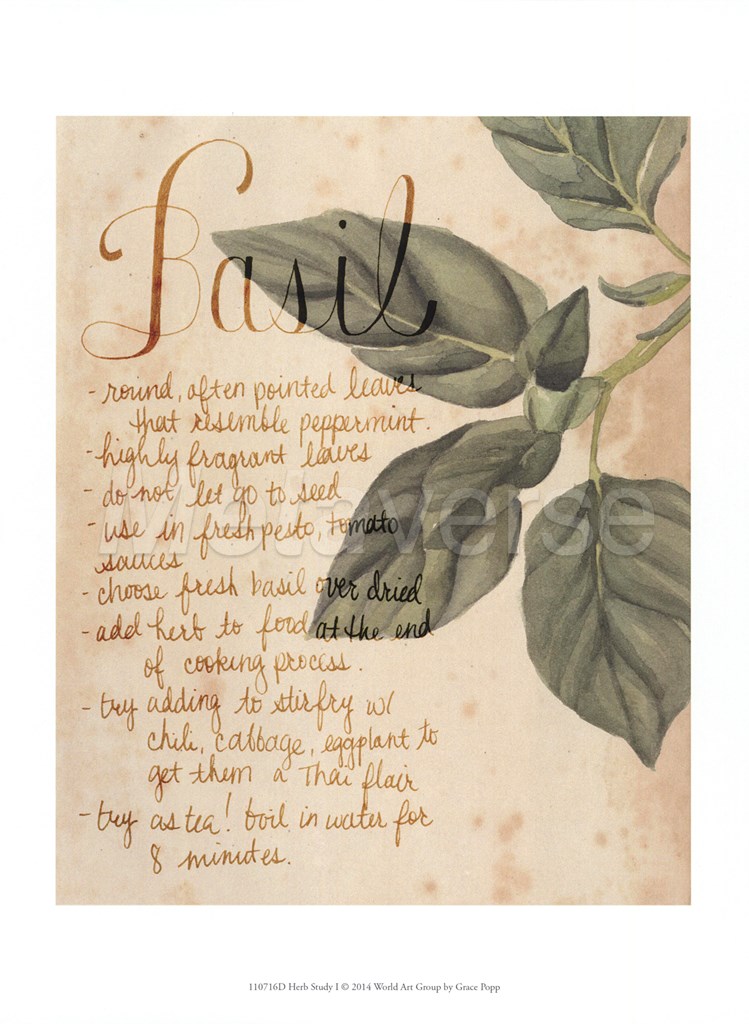 Basil
- round, often pointed leaves
that resemble peppermint.
- highly fragrant leaves
- do not let go to seed
- use in fresh pesto, tomato
sauces
- choose fresh basil over dried
- add herb to food at the end
of cooking process.
- try adding to stirfry w/
chili, cabbage, eggplant to
get them a Thai flair
- try as tea! boil in water for
8 minutes.
Metaverse
110716D Herb Study I © 2014 World Art Group by Grace Popp